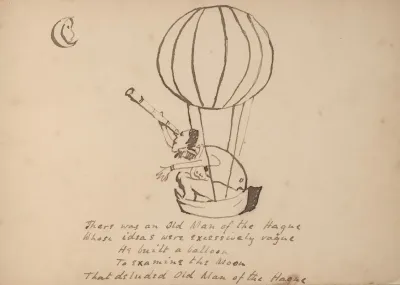 There was an Old Man of the Hague
Whose ideas were excessively vague
He built a balloon
To examine the Moon
That deluded Old Man of the Hague